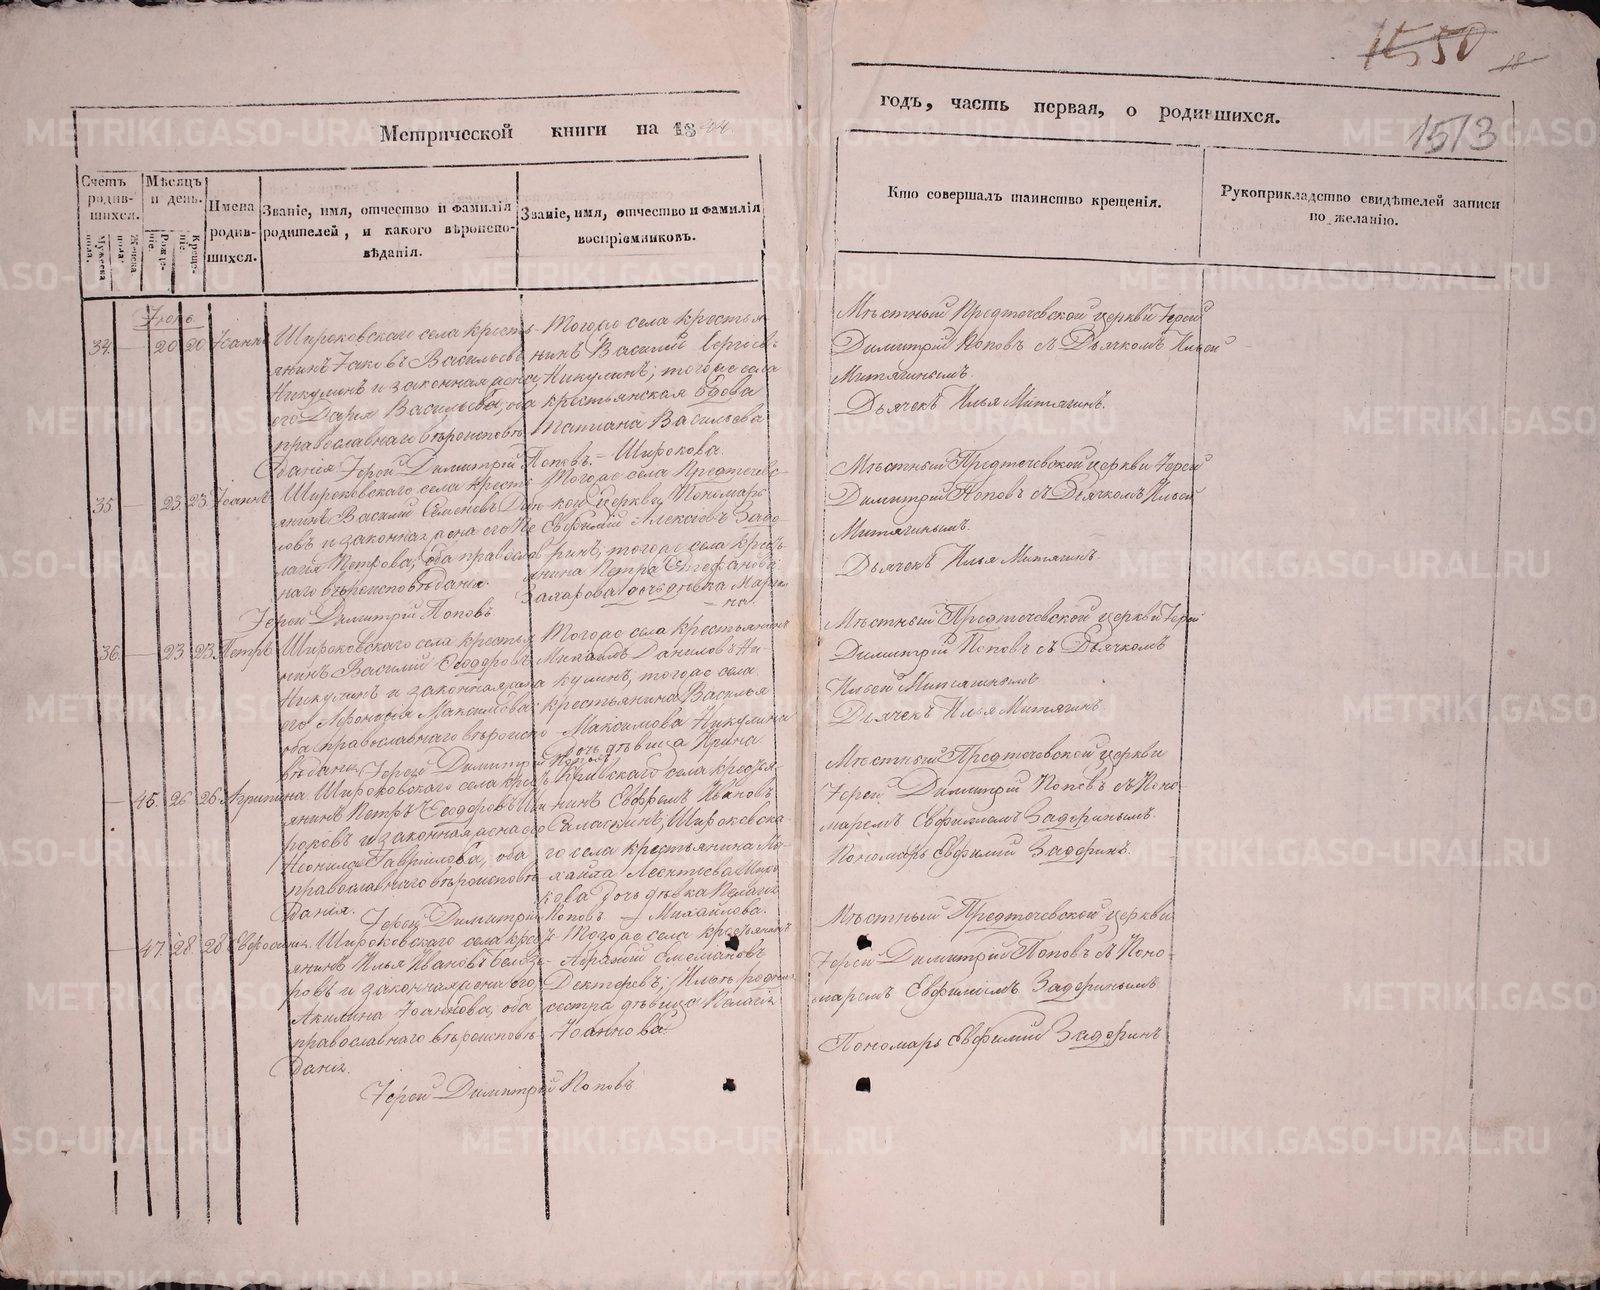 1550
18
Метрической книги на 1844.
годъ, часть первая, о родившихся.
1513
Счетъ родившихся.
Мужеска пола.
Женска пола.
Мѣсяцъ и день.
Рожденіе.
Крещеніе.
Имена родившихся.
Званіе, имя, отчество и фамилія родителей, и какого вѣроисповѣданія.
Званіе, имя, отчество и фамилія воспріемниковъ.
Кто совершалъ таинство крещенія.
Рукоприкладство свидѣтелей записи по желанію.
34. — 20 20 Іоаннъ
Широковскаго села кресть-
янинъ Іаковъ Васильевъ
Никулинъ и законная жена
его Дарья Васильева, оба
православнаго вѣроисповѣ-
данія. Іерей Димитрій Поповъ.
Тогоже села крестья-
нинъ Василій Сергіевъ
Никулинъ; тогоже села
крестьянская вдова
Татіана Васильева
Широкова.
Мѣстный Предтечевской церкви Іерей
Димитрій Поповъ съ Дьячкомъ Ильей
Митягинымъ.
Дьячекъ Илья Митягинъ.
35 — 23 23 Іоаннъ
Широковскаго села кресть-
янинъ Василій Семеновъ
и законная жена его Пе-
лагія Петрова, оба православ-
наго вѣроисповѣданія.
Іерей Димитрій Поповъ
Тогоже села Предтечевс-
кой церкви Пономарь
Евфимій Алексіевъ Задо-
ринъ, тогоже села кресть-
янина Петра Епифанова
Захарова дочь дѣвка Марі-
на.
Мѣстный Предтечевской церкви Іерей
Димитрій Поповъ съ Дьячкомъ Ильей
Митягинымъ.
Дьячекъ Илья Митягинъ
36. — 23 23 Петръ
Широковскаго села крестья-
нинъ Василій Ѳеодоровъ
Никулинъ и законная жена
его Афонасія Максимова
оба православнаго вѣроиспо-
вѣданія Іерей Димитрій Поповъ
Тогоже села крестьянинъ
Михаилъ Даниловъ Ни-
кулинъ, тогоже села
крестьянина Василья
Максимова Никулина
дочь дѣвица Ирина
Мѣстный Предтечевской церкви Іерей
Димитрій Поповъ съ Дьячкомъ
Ильей Митягинымъ
Дьячекъ Илья Митягинъ
— 45. 26 26 Агрипина
Широковскаго села кресть-
янинъ Петръ Ѳеодоровъ Ши-
роковъ и законная жена его
Неонила Гавріилова, оба
православнаго вѣроисповѣ-
данія. Іерей Димитрій Поповъ
села крестья-
нинъ Евфремъ Ивановъ
Широковска-
го села крестьянина Ми-
хайла Леонтьева Широ-
кова дочь дѣвка Пелагія
Михайлова.
Мѣстный Предтечевской церкви
Іерей Димитрій Поповъ съ Поно-
маремъ Евфиміемъ Задоринымъ.
Пономарь Евфимій Задоринъ.
— 47. 28. 28 Евфросинія.
Широковскаго села кресть-
янинъ Илья Ивановъ
и законная жена его
Акилина Іоаннова, оба
православнаго вѣроисповѣ-
данія.
Іерей Димитрій Поповъ
Тогоже села крестьянинъ
Дектеревъ; родная
сестра дѣвица Пелагія
Іоаннова.
Мѣстный Предтечевской церкви
Іерей Димитрій Поповъ съ Поно-
маремъ Евфиміемъ Задоринымъ
Пономарь Евфимій Задоринъ
METRIKI.GASO-URAL.RU